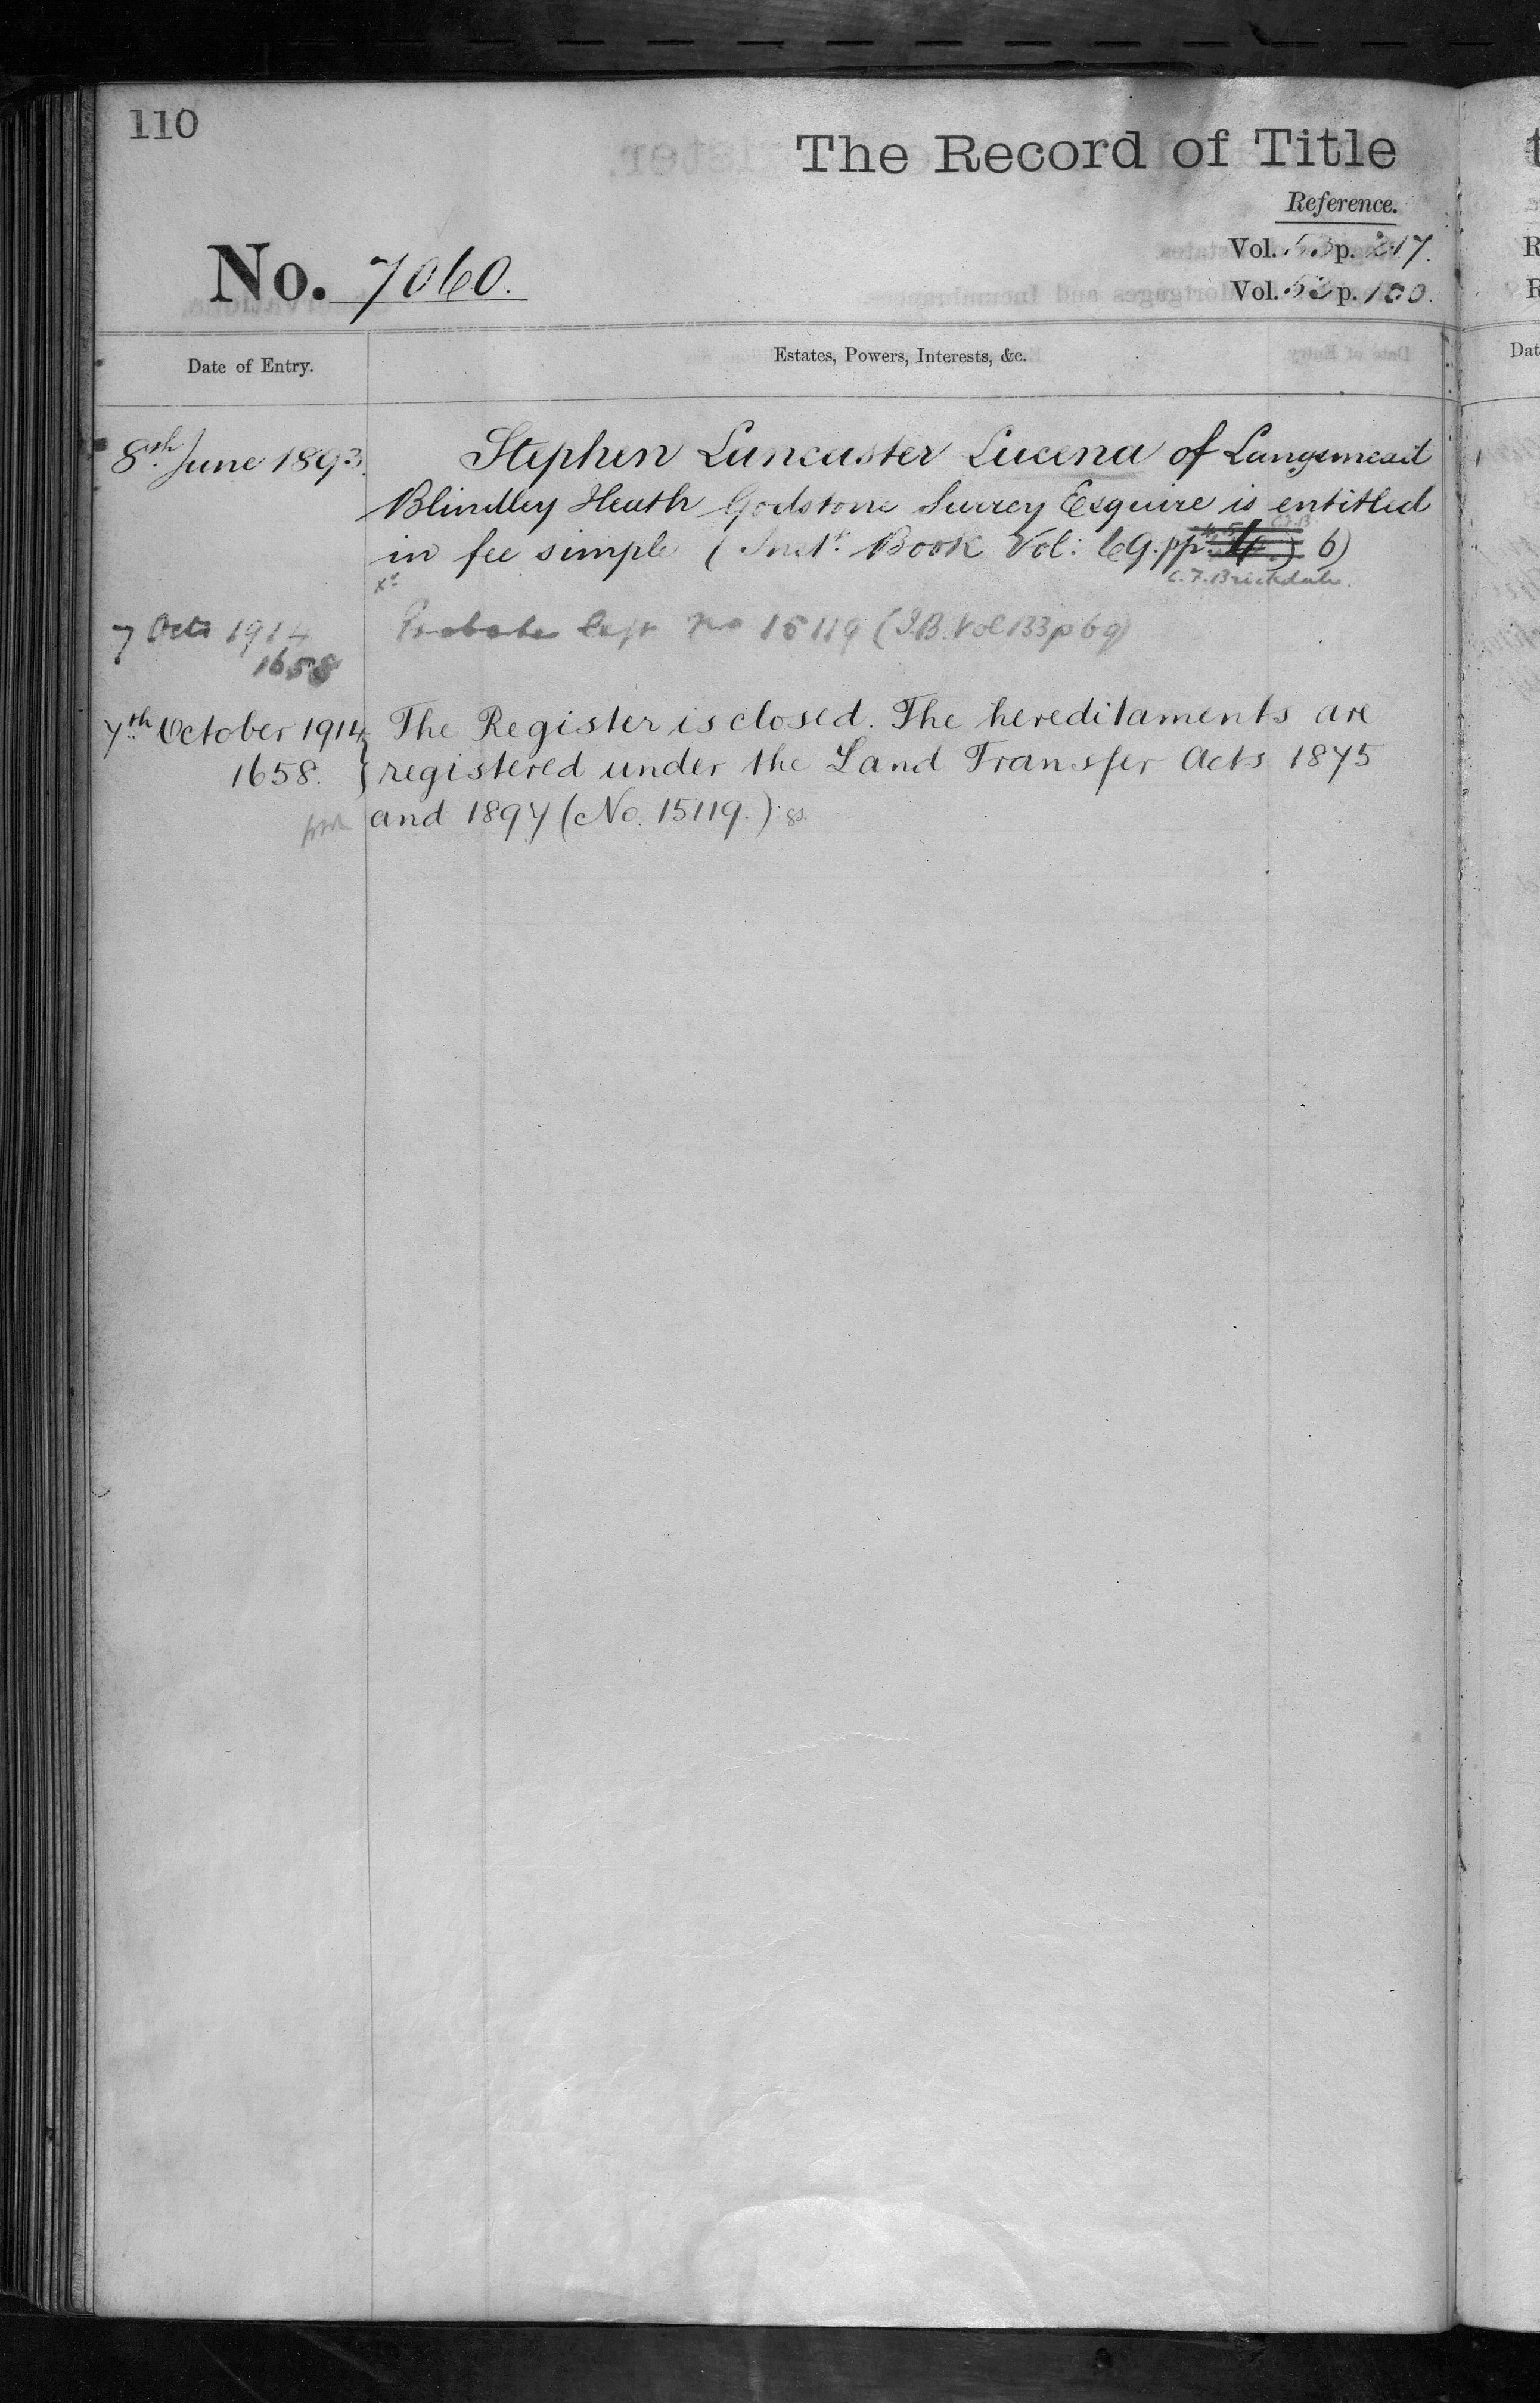 110
The Record of Title
Reference.
No. 7060.
Vol. 53 p. 217.
Vol. 53 p. 180.
Date of Entry.
Estates, Powers, Interests, &c.
8th June 1893.
Stephen Lancaster Lucena of Langsmead
Blindley Heath Godstone Surrey Esquire is entitled
in fee simple (Inst. Book Vol: 69. pp 6)
C.F. Brickdale.
7 Octr 1914
1658
Probate left No 15119 (I.B. Vol 133 p 69)
7th October 1914
1658.
The Register is closed. The hereditaments are
registered under the Land Transfer Acts 1875
and 1897 (No. 15119.)